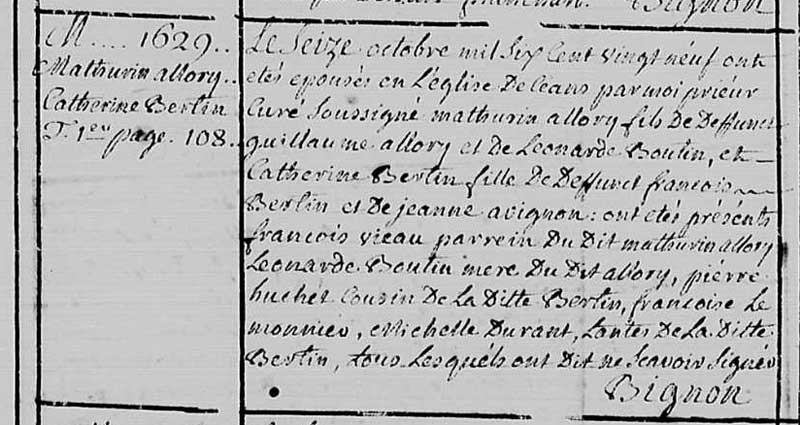 Bignon
M.... 1629..
Mathurin allory..
Catherine Bertin
T. 1er page. 108..
Le Seize octobre mil Six Cent vingt neuf ont
etés epousés en L'eglise De Ceans par moi prieur
Curé Soussigné mathurin allory fils De Deffunct
guillaume allory et De Leonarde Boutin, et
Catherine Bertin fille De Deffunct francois
Bertin et De jeanne avignon: ont etés présents
francois vieau parrein Du Dit mathurin allory
Leonarde Boutin mere Du Dit allory, pierre
huchet Cousin De La Ditte Bertin, francoise Le
monnier, Michelle Durant, tantes De La Ditte
Bertin, tous Lesquels ont Dit ne Scavoir Signer
Bignon